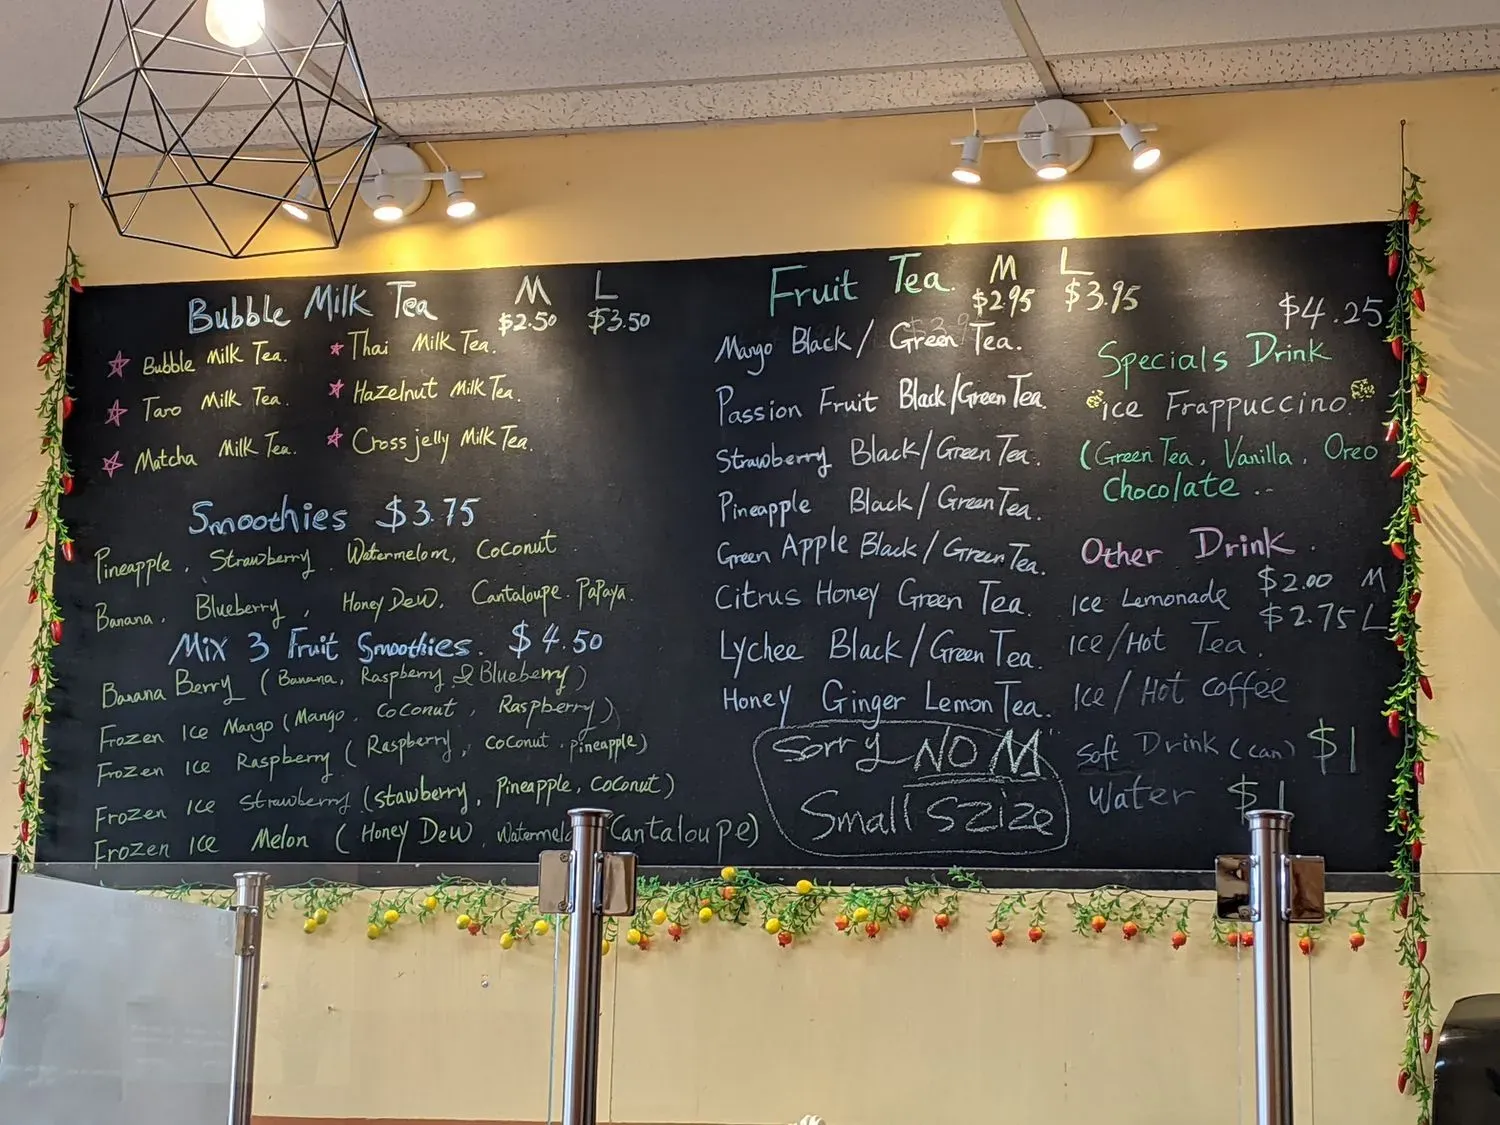 Bubble Milk Tea M L
$2.50 $3.50
Bubble Milk Tea.
Thai Milk Tea.
Taro Milk Tea.
Hazelnut Milk Tea.
Matcha Milk Tea.
Crossjelly Milk Tea.
Smoothies $3.75
Pineapple, Strawberry. Watermelom, Coconut
Banana, Blueberry, Honey Dew, Cantaloupe. Papaya.
Mix 3 Fruit Smoothies. $4.50
Banana Berry (Banana, Raspberry & Blueberry)
Frozen Ice Mango (Mango, Coconut, Raspberry)
Frozen Ice Raspberry (Raspberry, Coconut, pineapple)
Frozen Ice Strawberry (stawberry, Pineapple, Coconut)
Frozen Ice Melon (Honey Dew, Watermelo Cantaloupe)
Fruit Tea. M L
$2.95 $3.95
Mango Black/Green Tea.
Passion Fruit Black/Green Tea.
Strawberry Black/Green Tea.
Pineapple Black/Green Tea.
Green Apple Black/Green Tea.
Citrus Honey Green Tea.
Lychee Black/Green Tea.
Honey Ginger Lemon Tea.
Sorry NO M
Small Szize
$4.25
Specials Drink
Ice Frappuccino
(Green Tea, Vanilla, Oreo
Chocolate ..
Other Drink.
Ice Lemonade $2.00 M
$2.75 L
Ice/Hot Tea.
Ice/Hot Coffee
Soft Drink (can) $1
Water $1